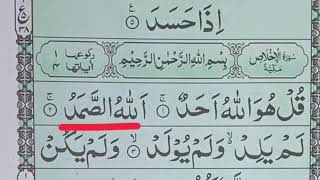 إِذَا حَسَدَ ۝٥
سُوْرَةُ الْاِخْلَاصِ مَكِّيَّةٌ بِسْمِ اللهِ الرَّحْمٰنِ الرَّحِيْمِ رکوعها ١ آیاتها ٤
قُلْ هُوَ اللهُ اَحَدٌ ۝١ اَللهُ الصَّمَدُ ۝٢
لَمْ يَلِدْ ۙ وَلَمْ يُوْلَدْ ۝٣ وَلَمْ يَكُنْ